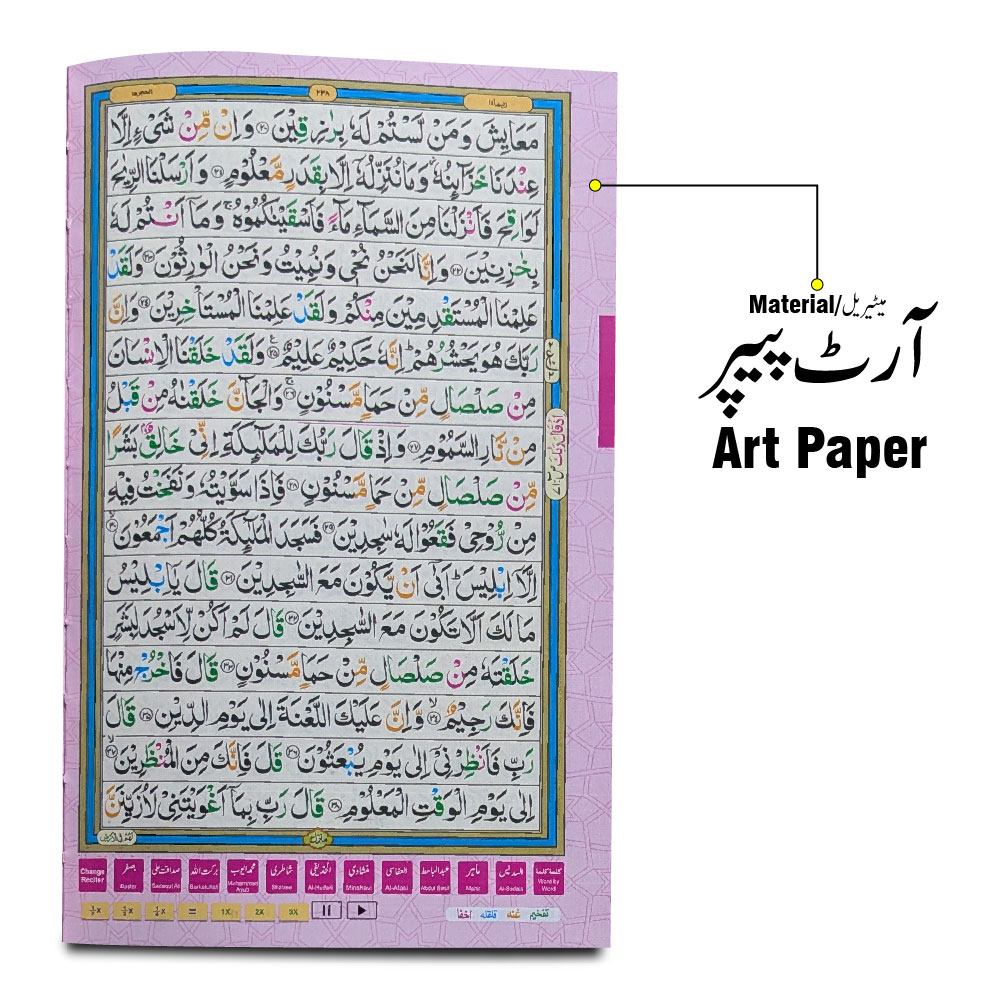 ربما ١٤
٢٣٨
الحجر ١٥
مَعَايِشَ وَ مَنْ لَّسْتُمْ لَهٗ بِرٰزِقِيْنَ ﴿۲۰﴾ وَ اِنْ مِّنْ شَیْءٍ اِلَّا
عِنْدَنَا خَزَآىِٕنُهٗ٘ وَ مَا نُنَزِّلُهٗۤ اِلَّا بِقَدَرٍ مَّعْلُوْمٍ ﴿۲۱﴾ وَ اَرْسَلْنَا الرِّیٰحَ
لَوَاقِحَ فَاَنْزَلْنَا مِنَ السَّمَآءِ مَآءً فَاَسْقَیْنٰكُمُوْهُ ۚ وَ مَاۤ اَنْتُمْ لَهٗ
بِخٰزِنِیْنَ ﴿۲۲﴾ وَ اِنَّا لَنَحْنُ نُحْیٖ وَ نُمِیْتُ وَ نَحْنُ الْوٰرِثُوْنَ ﴿۲۳﴾ وَ لَقَدْ
عَلِمْنَا الْمُسْتَقْدِمِیْنَ مِنْكُمْ وَ لَقَدْ عَلِمْنَا الْمُسْتَاْخِرِیْنَ ﴿۲۴﴾ وَ اِنَّ
رَبَّكَ هُوَ یَحْشُرُهُمْ ؕ اِنَّهٗ حَكِیْمٌ عَلِیْمٌ ﴿۲۵﴾ وَ لَقَدْ خَلَقْنَا الْاِنْسَانَ
مِنْ صَلْصَالٍ مِّنْ حَمَاٍ مَّسْنُوْنٍ ﴿۲۶﴾ وَ الْجَآنَّ خَلَقْنٰهُ مِنْ قَبْلُ
مِنْ نَّارِ السَّمُوْمِ ﴿۲۷﴾ وَ اِذْ قَالَ رَبُّكَ لِلْمَلٰٓىِٕكَةِ اِنِّیْ خَالِقٌۢ بَشَرًا
مِّنْ صَلْصَالٍ مِّنْ حَمَاٍ مَّسْنُوْنٍ ﴿۲۸﴾ فَاِذَا سَوَّیْتُهٗ وَ نَفَخْتُ فِیْهِ
مِنْ رُّوْحِیْ فَقَعُوْا لَهٗ سٰجِدِیْنَ ﴿۲۹﴾ فَسَجَدَ الْمَلٰٓىِٕكَةُ كُلُّهُمْ اَجْمَعُوْنَ ﴿۳۰﴾
اِلَّاۤ اِبْلِیْسَ ؕ اَبٰۤی اَنْ یَّكُوْنَ مَعَ السّٰجِدِیْنَ ﴿۳۱﴾ قَالَ یٰۤاِبْلِیْسُ
مَا لَكَ اَلَّا تَكُوْنَ مَعَ السّٰجِدِیْنَ ﴿۳۲﴾ قَالَ لَمْ اَكُنْ لِّاَسْجُدَ لِبَشَرٍ
خَلَقْتَهٗ مِنْ صَلْصَالٍ مِّنْ حَمَاٍ مَّسْنُوْنٍ ﴿۳۳﴾ قَالَ فَاخْرُجْ مِنْهَا
فَاِنَّكَ رَجِیْمٌ ﴿۳۴﴾ وَّ اِنَّ عَلَیْكَ اللَّعْنَةَ اِلٰی یَوْمِ الدِّیْنِ ﴿۳۵﴾ قَالَ
رَبِّ فَاَنْظِرْنِیْۤ اِلٰی یَوْمِ یُبْعَثُوْنَ ﴿۳۶﴾ قَالَ فَاِنَّكَ مِنَ الْمُنْظَرِیْنَ ﴿۳۷﴾
اِلٰی یَوْمِ الْوَقْتِ الْمَعْلُوْمِ ﴿۳۸﴾ قَالَ رَبِّ بِمَاۤ اَغْوَیْتَنِیْ لَاُزَیِّنَنَّ
منزل ٣
Change Reciter
اصغر Asghar
صداقت علی Sadaqat Ali
برکت اللہ Barkatullah
محمد ایوب Muhammad Ayub
شاطری Shatree
الحذیفی Al-Hudaifi
منشاوی Minshawi
العفاسی Al-Afasi
عبدالباسط Abdul Basit
ماہر Maher
السدیس Al-Sudais
کلمہ کلمہ Word by Word
= 1X 2X 3X
تفخیم غنہ قلقلہ اخفا
Material/میٹیریل
آرٹ پیپر
Art Paper